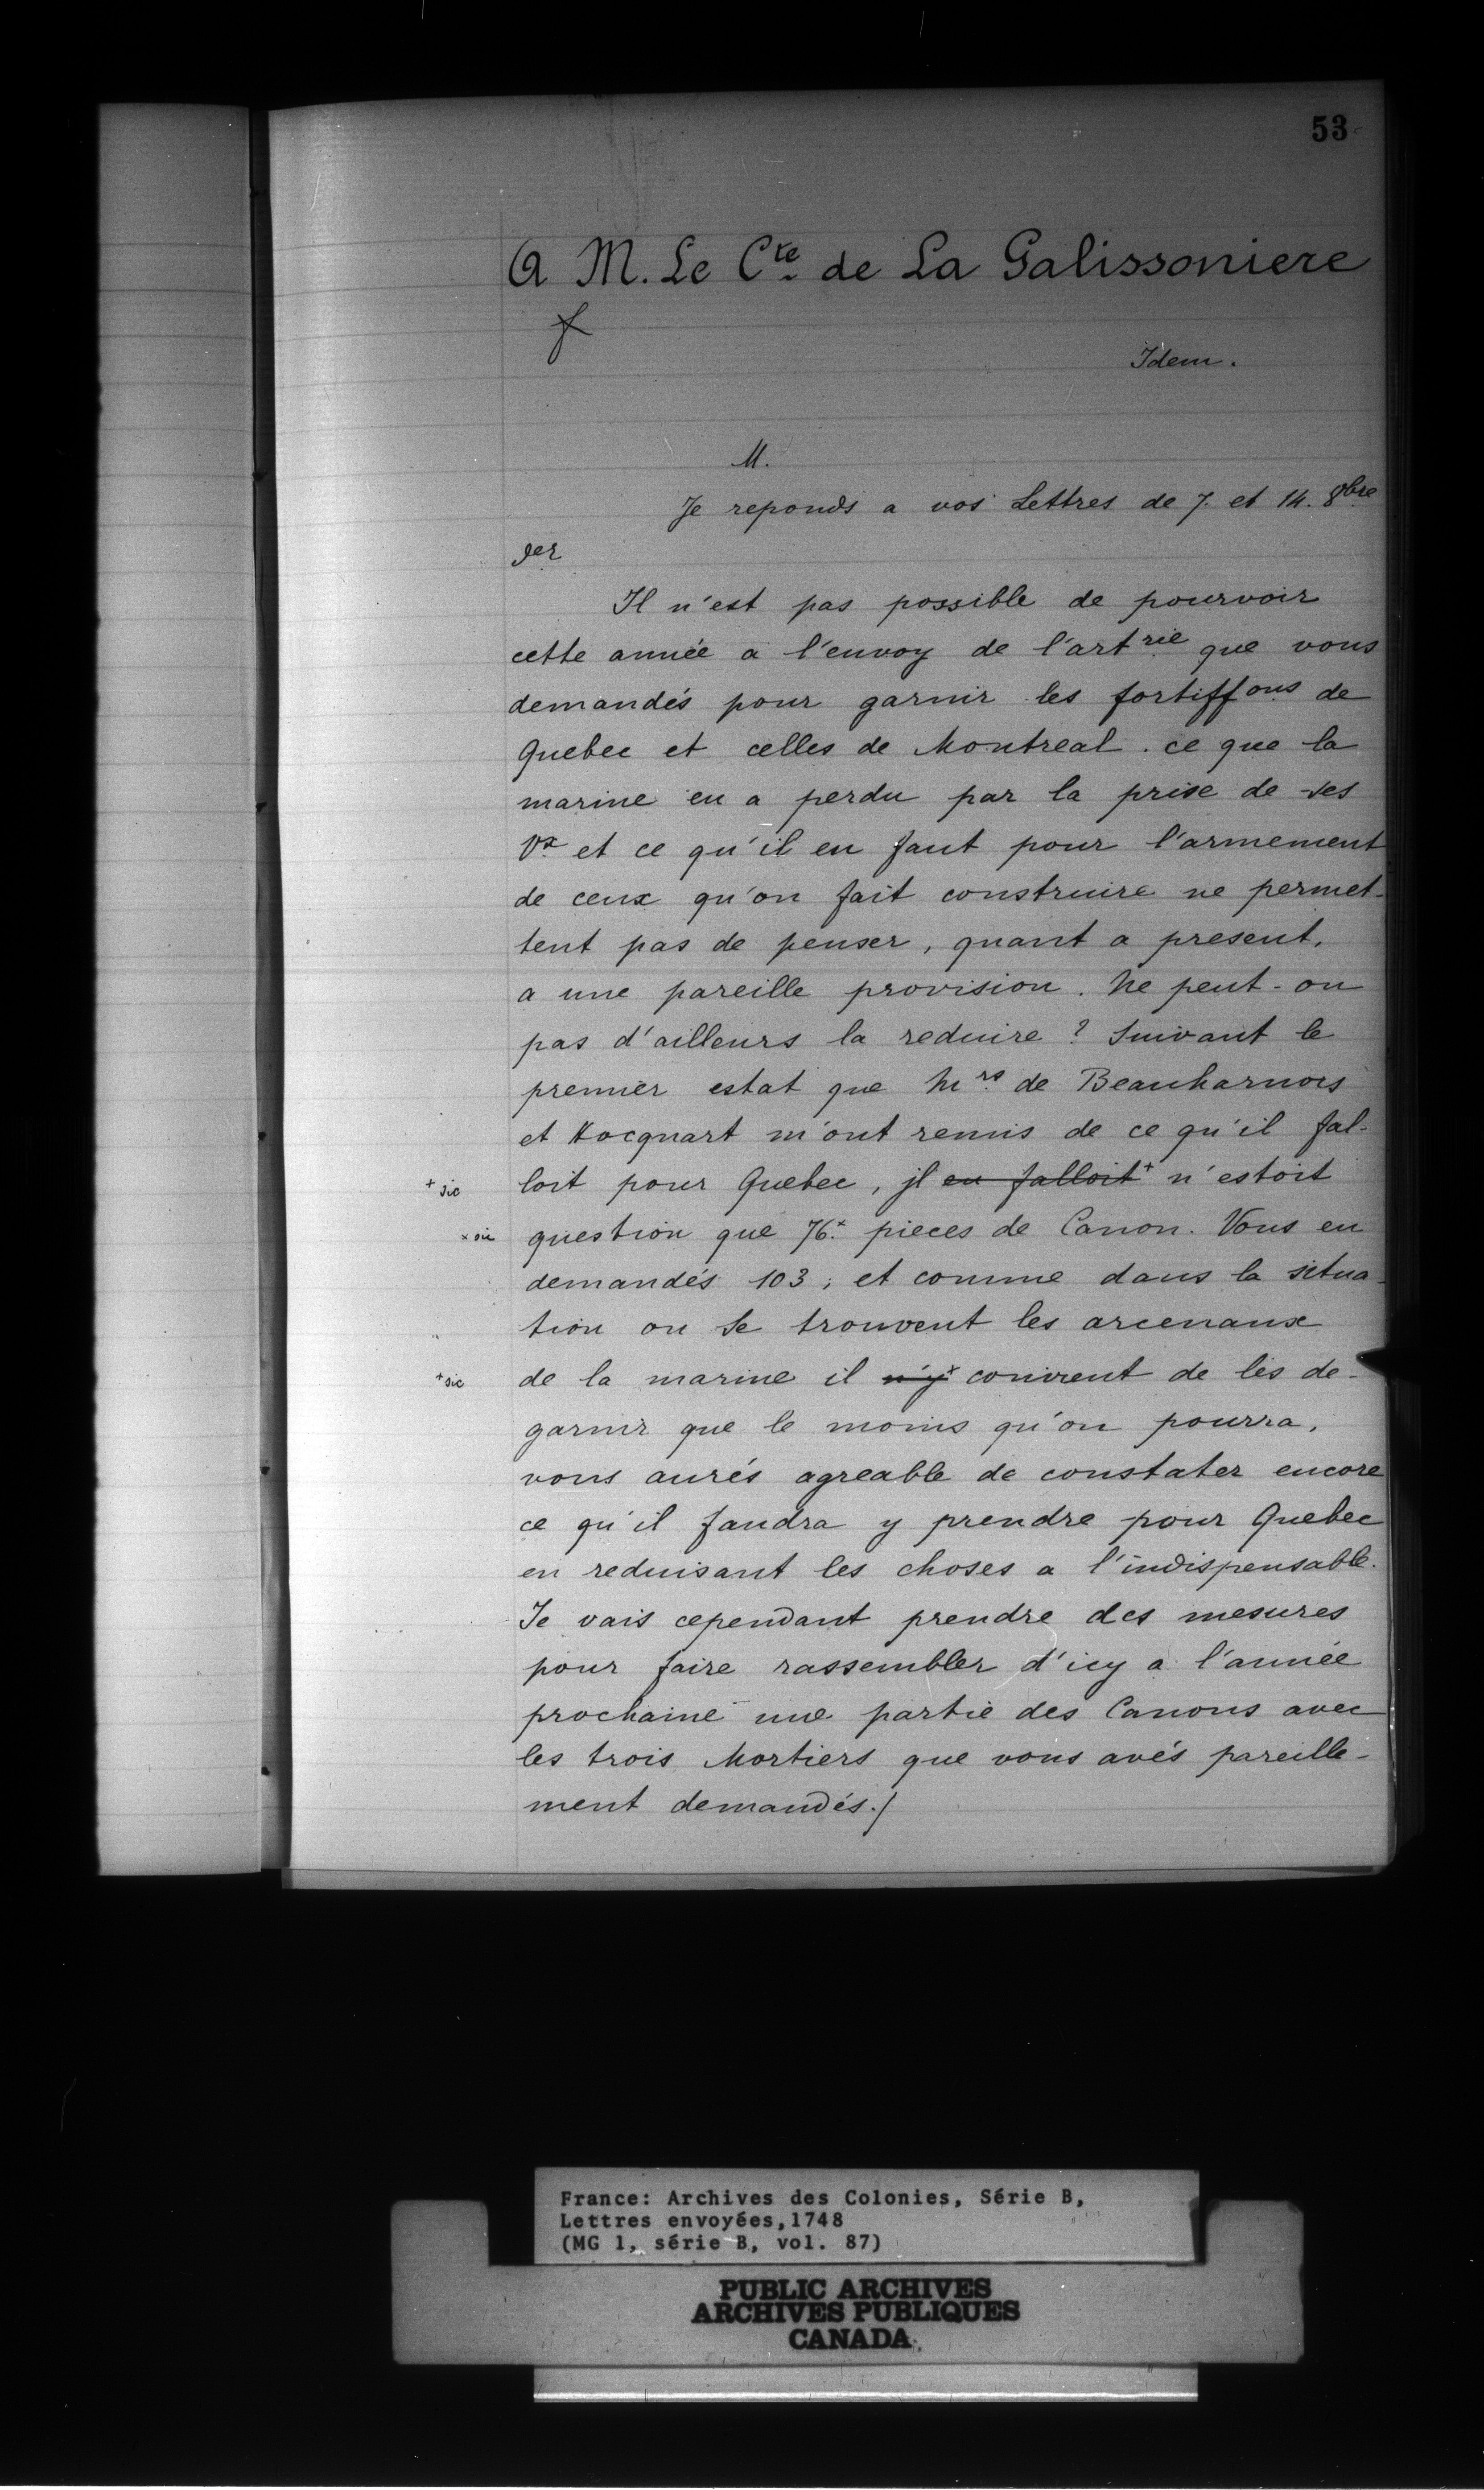 53
A M. Le Cte de La Galissoniere
Idem.
M.
Je reponds a vos Lettres de 7. et 14. 8bre
der
Il n'est pas possible de pourvoir
cette année a l'envoy de l'artrie que vous
demandés pour garnir les fortiffons de
Quebec et celles de Montreal. ce que la
marine en a perdu par la prise de ses
Vx et ce qu'il en faut pour l'armement
de ceux qu'on fait construire ne permet-
tent pas de penser, quant a present,
a une pareille provision. Ne peut-on
pas d'ailleurs la reduire? Suivant le
premier estat que Mrs de Beauharnois
et Hocquart m'ont remis de ce qu'il fal-
+ sic loit pour Quebec, jl en falloit+ n'estoit
x sic question que 76.x pieces de Canon. Vous en
demandés 103; et comme dans la situa-
tion ou se trouvent les arcenaux
+ sic de la marine il n'y+ convient de les de-
garnir que le moins qu'on pourra,
vous aurés agreable de constater encore
ce qu'il faudra y prendre pour Quebec
en reduisant les choses a l'indispensable.
Je vais cependant prendre des mesures
pour faire rassembler d'icy a l'année
prochaine une partie des Canons avec
les trois Mortiers que vous avés pareille-
ment demandés./
France: Archives des Colonies, Série B,
Lettres envoyées,1748
(MG 1, série B, vol. 87)
PUBLIC ARCHIVES
ARCHIVES PUBLIQUES
CANADA